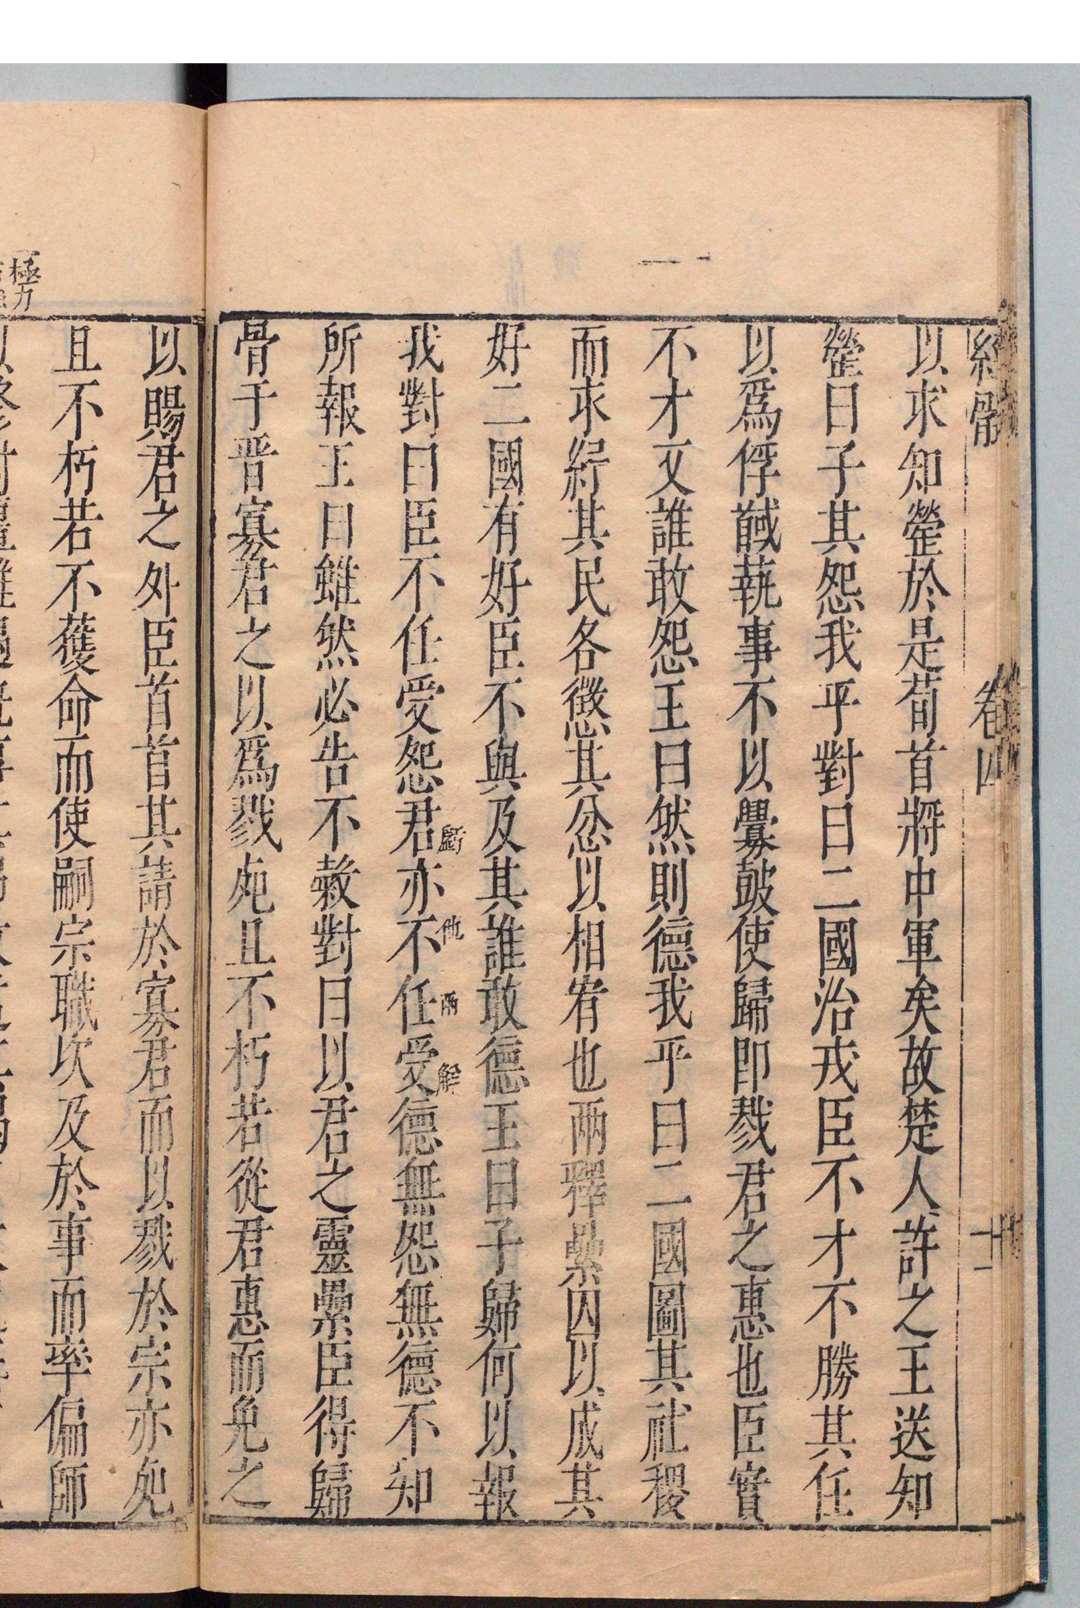 經髓 卷四 十二
以求知罃於是荀首將中軍矣故楚人許之王送知
罃曰子其怨我乎對曰二國治戎臣不才不勝其任
以爲俘馘執事不以釁鼓使歸即戮君之惠也臣實
不才又誰敢怨王曰然則德我乎曰二國圖其社稷
而求紓其民各懲其忿以相宥也兩釋纍囚以成其
好二國有好臣不與及其誰敢德王曰子歸何以報
我對曰臣不任受怨君亦不任受德無怨無德不知
斷他兩解
所報王曰雖然必告不穀對曰以君之靈纍臣得歸
骨于晋寡君之以爲戮死且不朽若從君惠而免之
以賜君之外臣首首其請於寡君而以戮於宗亦死
且不朽若不獲命而使嗣宗職次及於事而率偏師
極力